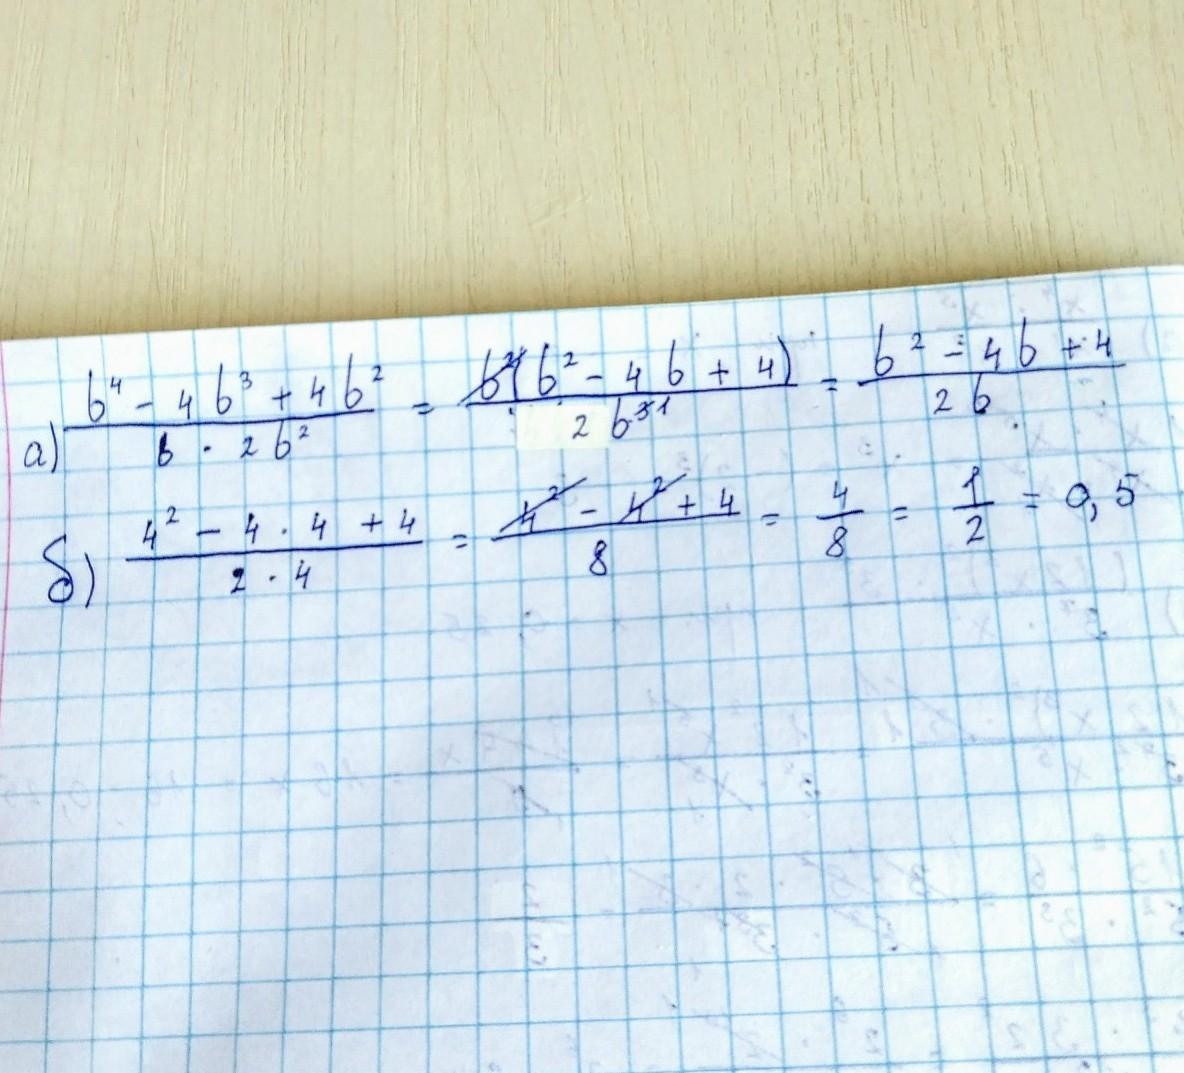 а) (b⁴ - 4b³ + 4b²)/(b · 2b²) = b²(b² - 4b + 4)/(2b³¹) = (b² - 4b + 4)/(2b)
б) (4² - 4 · 4 + 4)/(2 · 4) = (4² - 4² + 4)/8 = 4/8 = 1/2 = 0,5